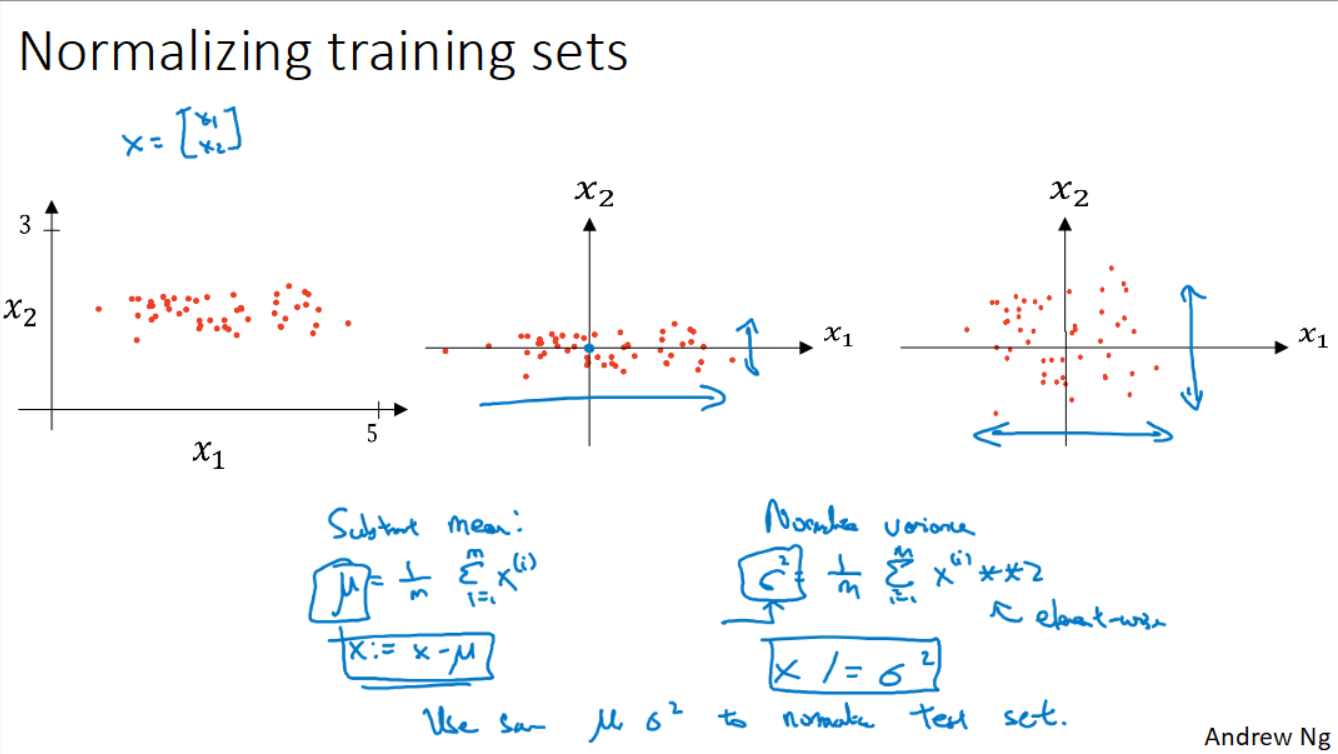 Normalizing training sets
x = [x₁ x₂]
3
x₂
5
x₁
x₂
x₁
x₂
x₁
Subtract mean:
μ = 1/m Σ_{i=1}^{m} x^{(i)}
x := x - μ
Normalize variance
σ² = 1/m Σ_{i=1}^{m} x^{(i)} **2
element-wise
x /= σ²
Use same μ σ² to normalize test set.
Andrew Ng